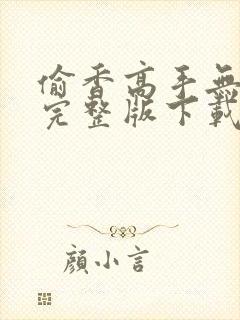 偷香高手無
完整版下載
顏小言